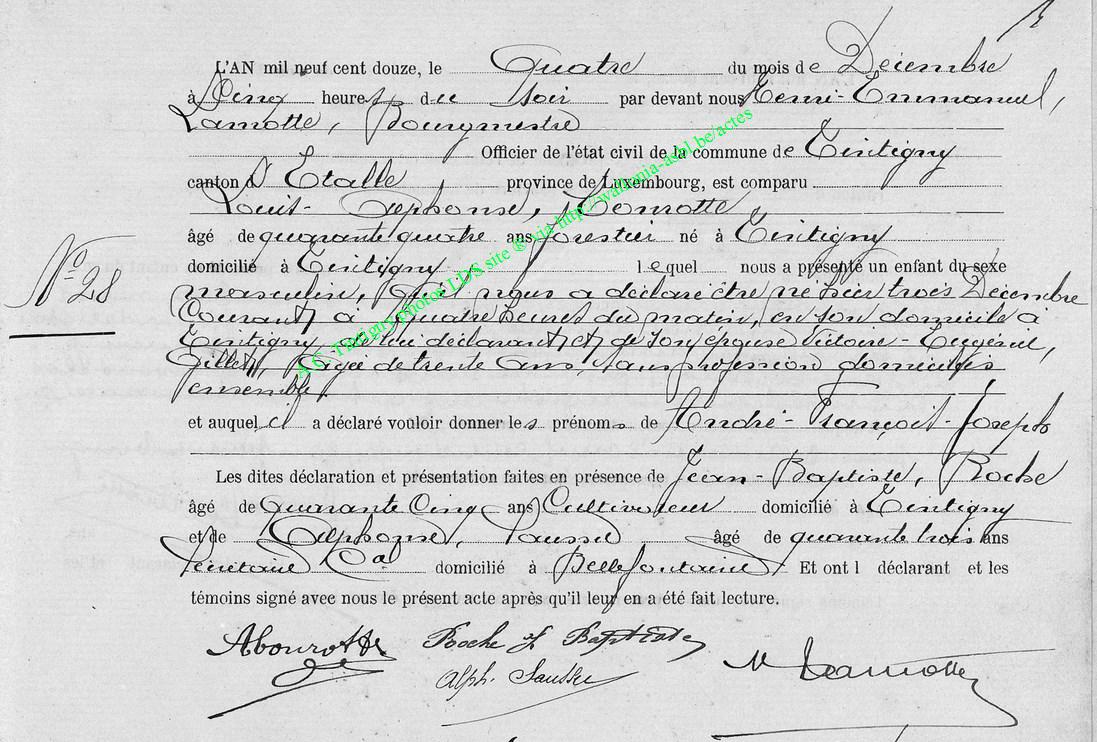 L'AN mil neuf cent douze, le Quatre du mois de Décembre
à Cinq heures du soir par devant nous Henri-Emmanuel,
Lamotte, Bourgmestre
Officier de l'état civil de la commune de Tintigny
canton d'Etalle province de Luxembourg, est comparu
Louis-Alphonse,
âgé de quarante quatre ans forestier né à Tintigny
domicilié à Tintigny lequel nous a présenté un enfant du sexe
masculin, qu'il nous a déclaré être né hier trois Décembre
Courant à quatre heures du matin, en son domicile à
Tintigny de lui déclarant et de son épouse Victoire-Eugénie,
Gillet, âgée de trente ans, sans profession domiciliés
ensemble
et auquel il a déclaré vouloir donner les prénoms de André-François-Joseph
Les dites déclaration et présentation faites en présence de Jean-Baptiste, Roche
âgé de quarante cinq ans Cultivateur domicilié à Tintigny
et de Alphonse, Sausse âgé de quarante trois ans
Secrétaire Cal domicilié à Bellefontaine Et ont l déclarant et les
témoins signé avec nous le présent acte après qu'il leur en a été fait lecture.
N° 28
Roche J Baptiste
Alph. Lamotte
A.C. Tintigny photos LDS site ® via http://wallonia-asbl.be/actes